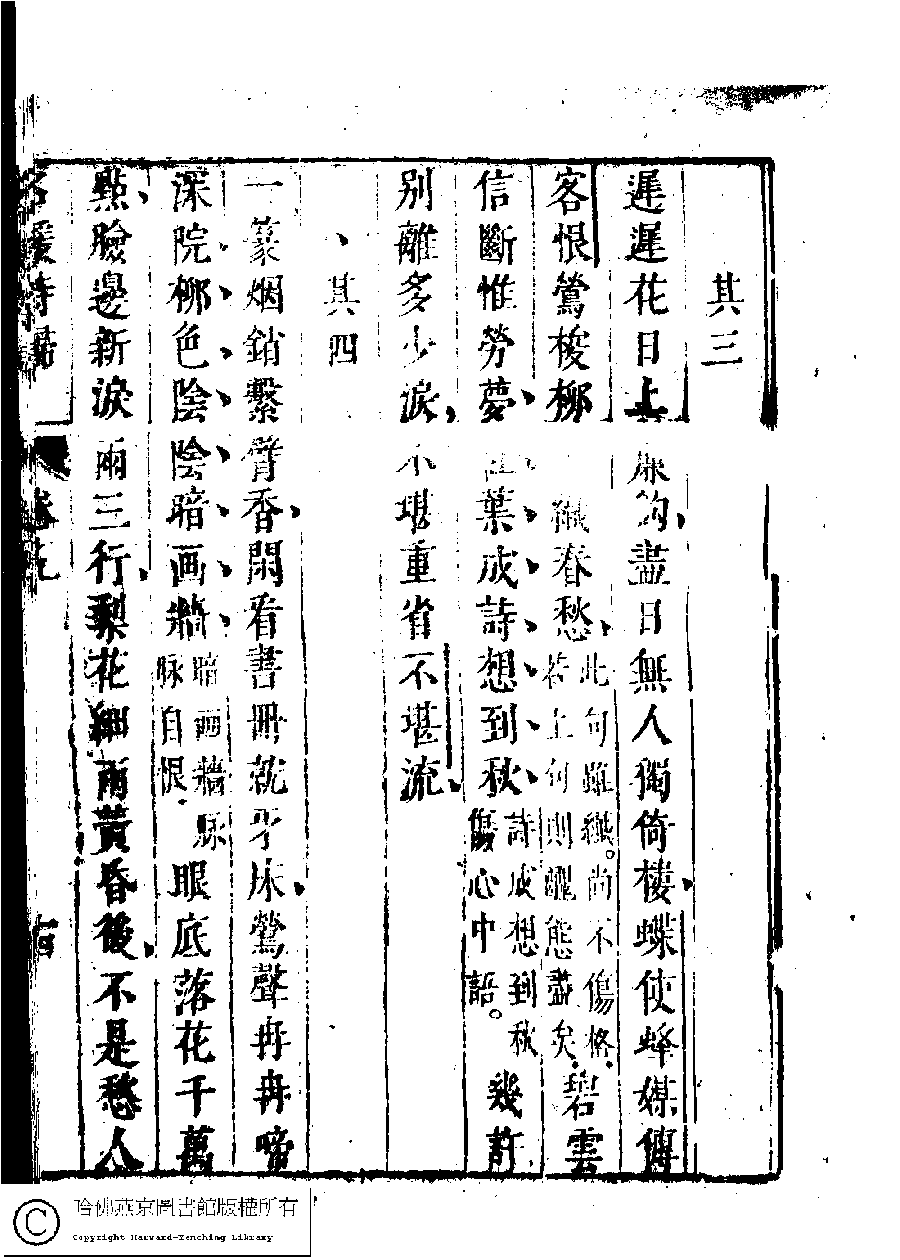 其三
遲遲花日上簾鈎盡日無人獨倚樓蝶使蜂媒傳
客恨鶯梭柳線織春愁此句雖纖尚不傷格若上句則醜態盡矣碧雲
信斷惟勞夢紅葉成詩想到秋詩成想到秋傷心中語幾許
別離多少淚不堪重省不堪流
其四
一篆烟銷繫臂香閑看書冊就牙床鶯聲冉冉啼
深院柳色陰陰暗画牆暗画牆脉脉自恨眼底落花千萬
點臉邊新淚兩三行梨花細雨黃昏後不是愁人
名媛詩歸 卷五 十四
哈佛燕京圖書館版權所有
Copyright Harvard-Yenching Library